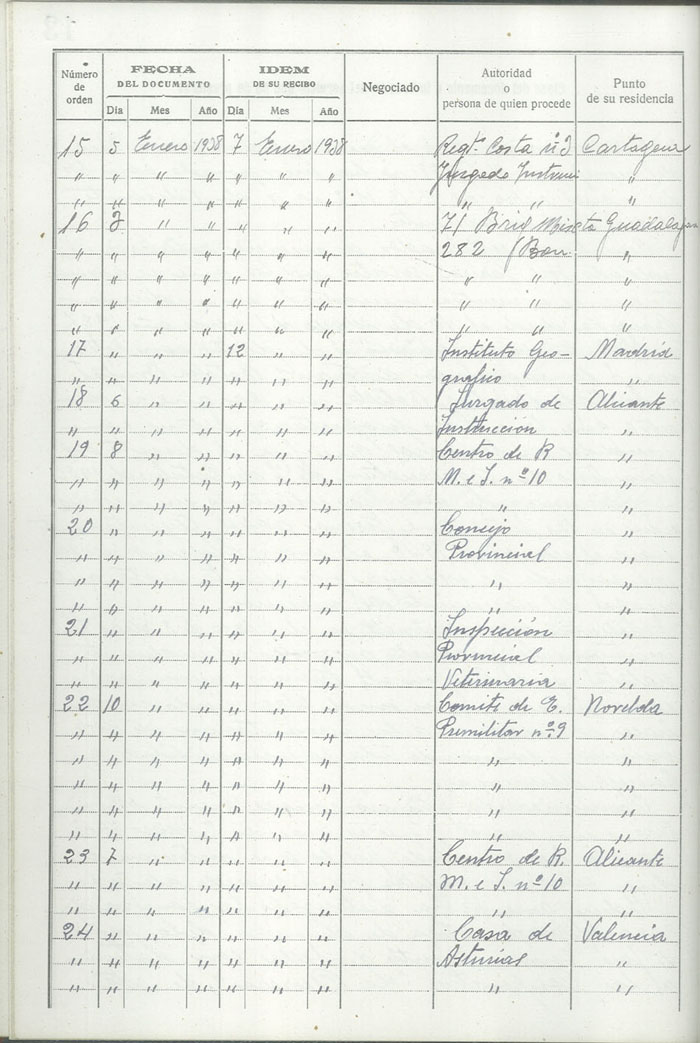 Número de orden | FECHA DEL DOCUMENTO | IDEM DE SU RECIBO | Negociado | Autoridad o persona de quien procede | Punto de su residencia
Día | Mes | Año | Día | Mes | Año
15 5 Enero 1938 7 Enero 1938 Regt. Costa nº 3 Cartagena
" " " " " " " Juzgado Instruc "
" " " " " " " " " "
16 3 " " " " " 71 Brig Mixta Guadalajara
" " " " " " " 282 Bon "
" " " " " " " " " "
" " " " " " " " " "
" " " " " " " " " "
17 " " " 12 " " Instituto Geo- Madrid
" " " " " " " grafico "
18 6 " " " " " Juzgado de Alicante
" " " " " " " Instrucción "
19 8 " " " " " Centro de R "
" " " " " " " M. e I. nº 10 "
" " " " " " " " "
20 " " " " " " Consejo "
" " " " " " " Provincial "
" " " " " " " " "
" " " " " " " " "
21 " " " " " " Inspección "
" " " " " " " Provincial "
" " " " " " " Veterinaria "
22 10 " " " " " Comite de E. Novelda
" " " " " " " Premilitar nº 9 "
" " " " " " " " "
" " " " " " " " "
" " " " " " " " "
" " " " " " " " "
23 7 " " " " " Centro de R. Alicante
" " " " " " " M. e I. nº 10 "
" " " " " " " " "
24 " " " " " " Casa de Valencia
" " " " " " " Asturias "
" " " " " " " " "